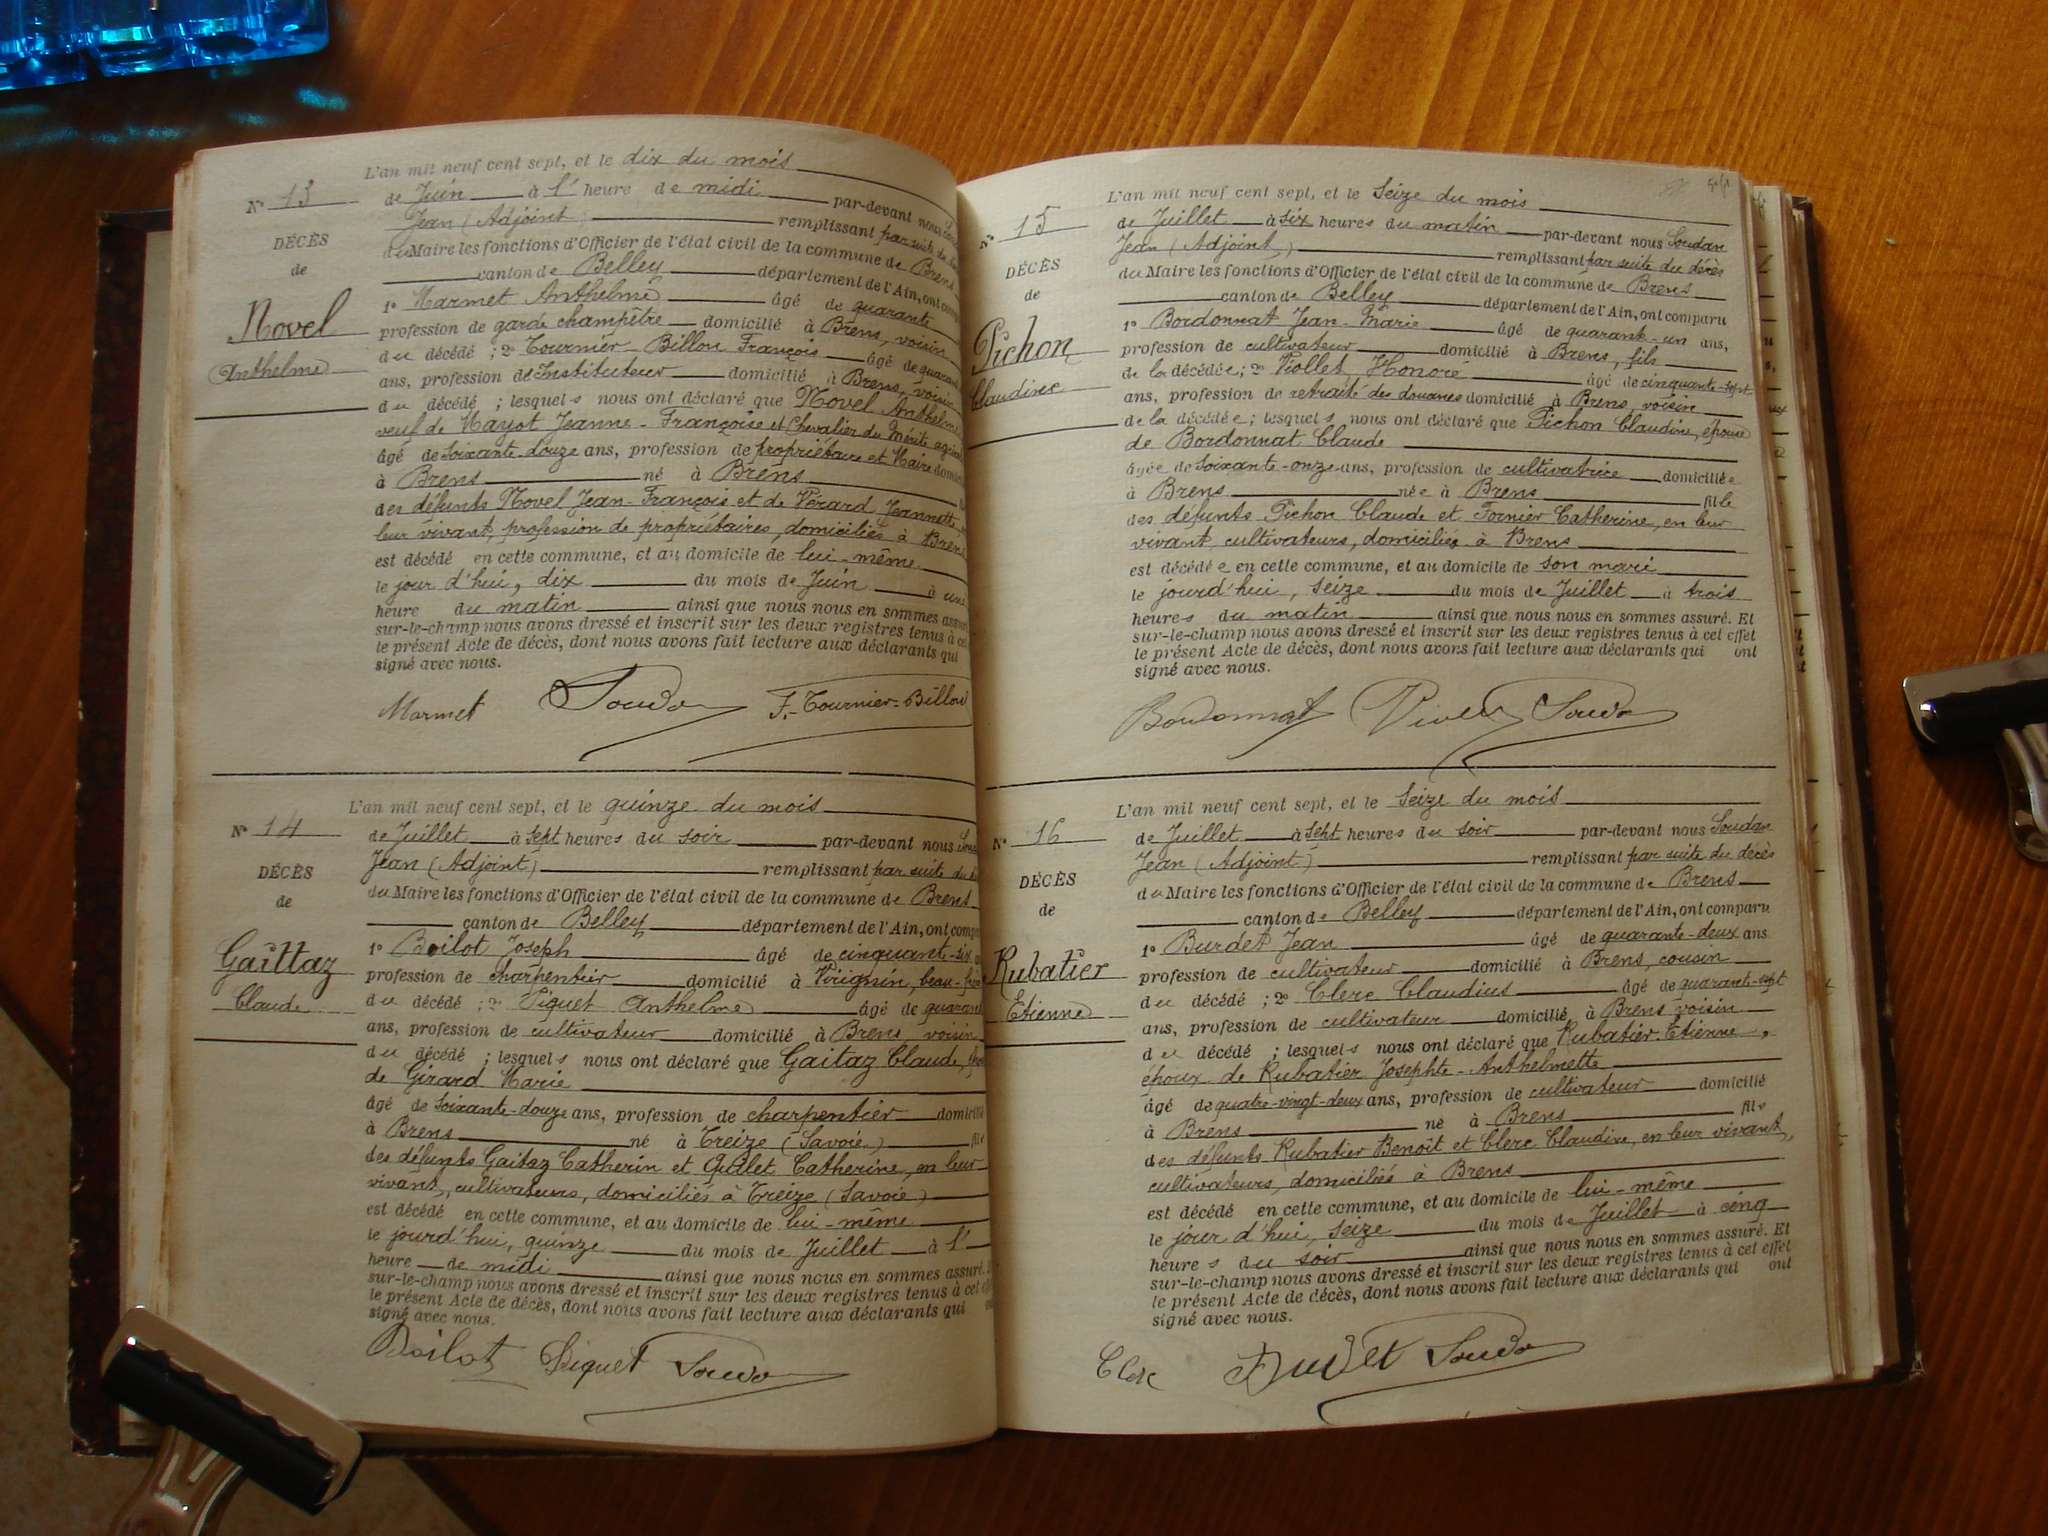 N° 13
DÉCÈS
de
Novel
Anthelme
L'an mil neuf cent sept, et le dix du mois
de Juin à l' heure de midi par-devant nous
Jean (Adjoint) remplissant par suite du
du Maire les fonctions d'Officier de l'état civil de la commune de Brens
canton de Belley département de l'Ain, ont
1° Marmet Anthelme âgé de quarante
profession de garde champêtre domicilié à Brens, voisin
du décédé ; 2° Tournier-Billon François âgé de
ans, profession de Instituteur domicilié à Brens, voisin
du décédé ; lesquels nous ont déclaré que Novel Anthelme
veuf de Mayot Jeanne-Françoise et Chevalier du Mérite
âgé de soixante-douze ans, profession de propriétaire et Maire
à Brens né à Brens
des défunts Novel Jean-François et de Vérard Jeannette
leur vivant, profession de propriétaires, domiciliés à Brens
est décédé en cette commune, et au domicile de lui-même
le jour d'hui, dix du mois de Juin à une
heure du matin ainsi que nous nous en sommes assuré
sur-le-champ nous avons dressé et inscrit sur les deux registres tenus à cet
le présent Acte de décès, dont nous avons fait lecture aux déclarants qui
signé avec nous.
Marmet Soudan F. Tournier-Billon
N° 14
DÉCÈS
de
Gaittaz
Claude
L'an mil neuf cent sept, et le quinze du mois
de Juillet à sept heures du soir par-devant nous
Jean (Adjoint) remplissant par suite du
du Maire les fonctions d'Officier de l'état civil de la commune de Brens
canton de Belley département de l'Ain, ont
1° Boilot Joseph âgé de cinquante-six
profession de charpentier domicilié à Virignin, beau-frère
du décédé ; 2° Siguet Anthelme âgé de
ans, profession de cultivateur domicilié à Brens, voisin
du décédé ; lesquels nous ont déclaré que Gaitaz Claude,
de Girard Marie
âgé de soixante-douze ans, profession de charpentier domicilié
à Brens né à Treize (Savoie) fils
des défunts Gaitaz Catherin et Catherine, en leur
vivant, cultivateurs, domiciliés à Treize (Savoie)
est décédé en cette commune, et au domicile de lui-même
le jourd'hui, quinze du mois de Juillet à l'
heure de midi ainsi que nous nous en sommes assuré.
sur-le-champ nous avons dressé et inscrit sur les deux registres tenus à cet
le présent Acte de décès, dont nous avons fait lecture aux déclarants qui
signé avec nous.
Boilot Siguet Soudan
N° 15
DÉCÈS
de
Pichon
Claudine
L'an mil neuf cent sept, et le seize du mois
de Juillet à six heures du matin par-devant nous Soudan
Jean (Adjoint) remplissant par suite du décès
du Maire les fonctions d'Officier de l'état civil de la commune de Brens
canton de Belley département de l'Ain, ont comparu
1° Bordonnat Jean-Marie âgé de quarant-un ans,
profession de cultivateur domicilié à Brens, fils
de la décédée ; 2° Viollet Honoré âgé de cinquante-sept
ans, profession de retraité des douanes domicilié à Brens, voisin
de la décédée ; lesquels nous ont déclaré que Pichon Claudine, épouse
de Bordonnat Claude
âgée de soixante-onze ans, profession de cultivatrice domiciliée
à Brens née à Brens fille
des défunts Pichon Claude et Fornier Catherine, en leur
vivant cultivateurs, domiciliés à Brens
est décédée en cette commune, et au domicile de son mari
le jourd'hui, seize du mois de Juillet à trois
heures du matin ainsi que nous nous en sommes assuré. Et
sur-le-champ nous avons dressé et inscrit sur les deux registres tenus à cet effet
le présent Acte de décès, dont nous avons fait lecture aux déclarants qui ont
signé avec nous.
Bordonnat Soudan
N° 16
DÉCÈS
de
Rubatier
Etienne
L'an mil neuf cent sept, et le seize du mois
de Juillet à sept heures du soir par-devant nous Soudan
Jean (Adjoint) remplissant par suite du décès
du Maire les fonctions d'Officier de l'état civil de la commune de Brens
canton de Belley département de l'Ain, ont comparu
1° Burdet Jean âgé de quarante-deux ans
profession de cultivateur domicilié à Brens, cousin
du décédé ; 2° Clerc Claudius âgé de quarante-sept
ans, profession de cultivateur domicilié à Brens voisin
du décédé ; lesquels nous ont déclaré que Rubatier Etienne,
époux de Rubatier Josephte-Anthelmette
âgé de quatre-vingt-deux ans, profession de cultivateur domicilié
à Brens né à Brens fils
des défunts Rubatier Benoît et Clerc Claudine, en leur vivant,
cultivateurs, domiciliés à Brens
est décédé en cette commune, et au domicile de lui-même
le jour d'hui, seize du mois de Juillet à cinq
heures du soir ainsi que nous nous en sommes assuré. Et
sur-le-champ nous avons dressé et inscrit sur les deux registres tenus à cet effet
le présent Acte de décès, dont nous avons fait lecture aux déclarants qui ont
signé avec nous.
Clerc Burdet Soudan